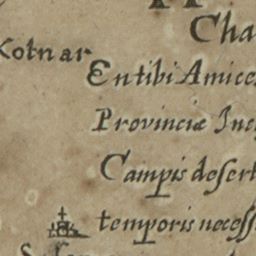 Cha
Kotnar
Entibi Amice
Provinciæ Inc
Campis desert
temporis necess